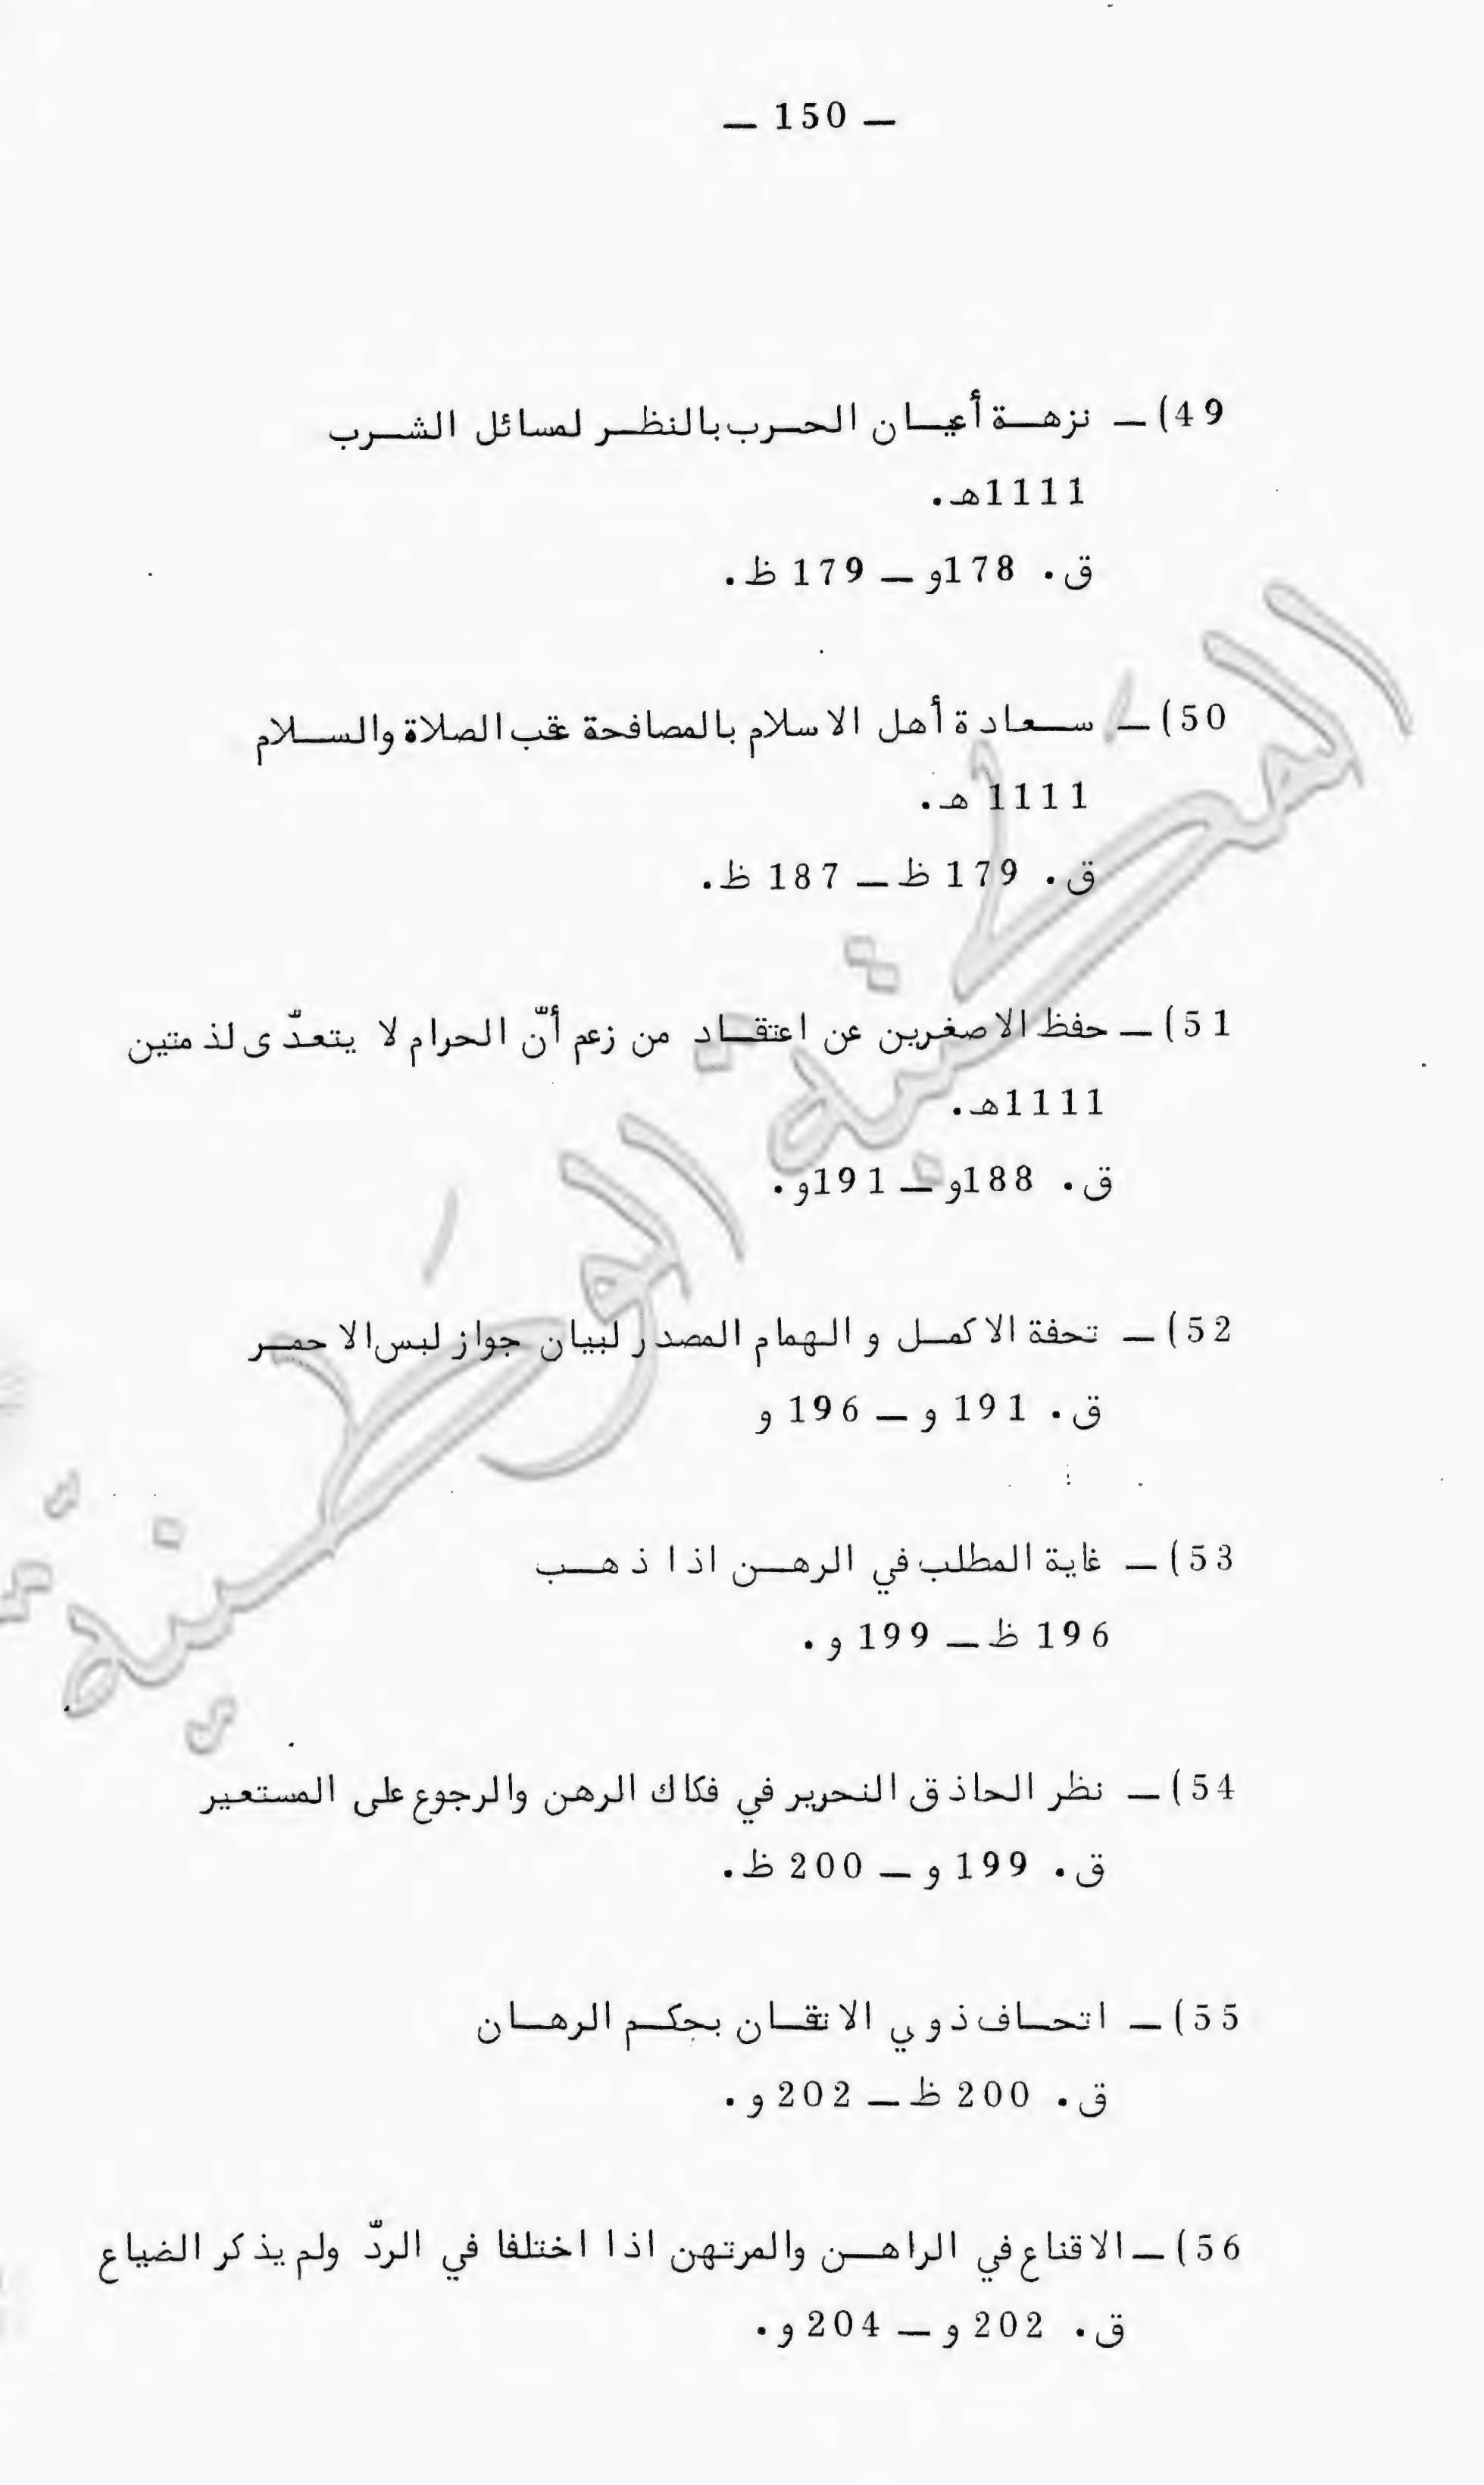 — 150 —
49) — نزهة أعيان الحرب بالنظر لمسائل الشرب
1111هـ.
ق. 178و — 179 ظ.
50) — سعادة أهل الاسلام بالمصافحة عقب الصلاة والسلام
1111 هـ.
ق. 179 ظ — 187 ظ.
51) — حفظ الاصغرين عن اعتقاد من زعم أنّ الحرام لا يتعدّى لذمتين
1111هـ.
ق. 188و — 191و.
52) — تحفة الاكمل و الهمام المصدر لبيان جواز لبس الاحمر
ق. 191 و — 196 و
53) — غاية المطلب في الرهن اذا ذهب
196 ظ — 199 و.
54) — نظر الحاذق النحرير في فكاك الرهن والرجوع على المستعير
ق. 199 و — 200 ظ.
55) — اتحاف ذوي الاتقان بحكم الرهان
ق. 200 ظ — 202 و.
56) — الاقناع في الراهن والمرتهن اذا اختلفا في الردّ ولم يذكر الضياع
ق. 202 و — 204 و.
المكتبة الوطنية